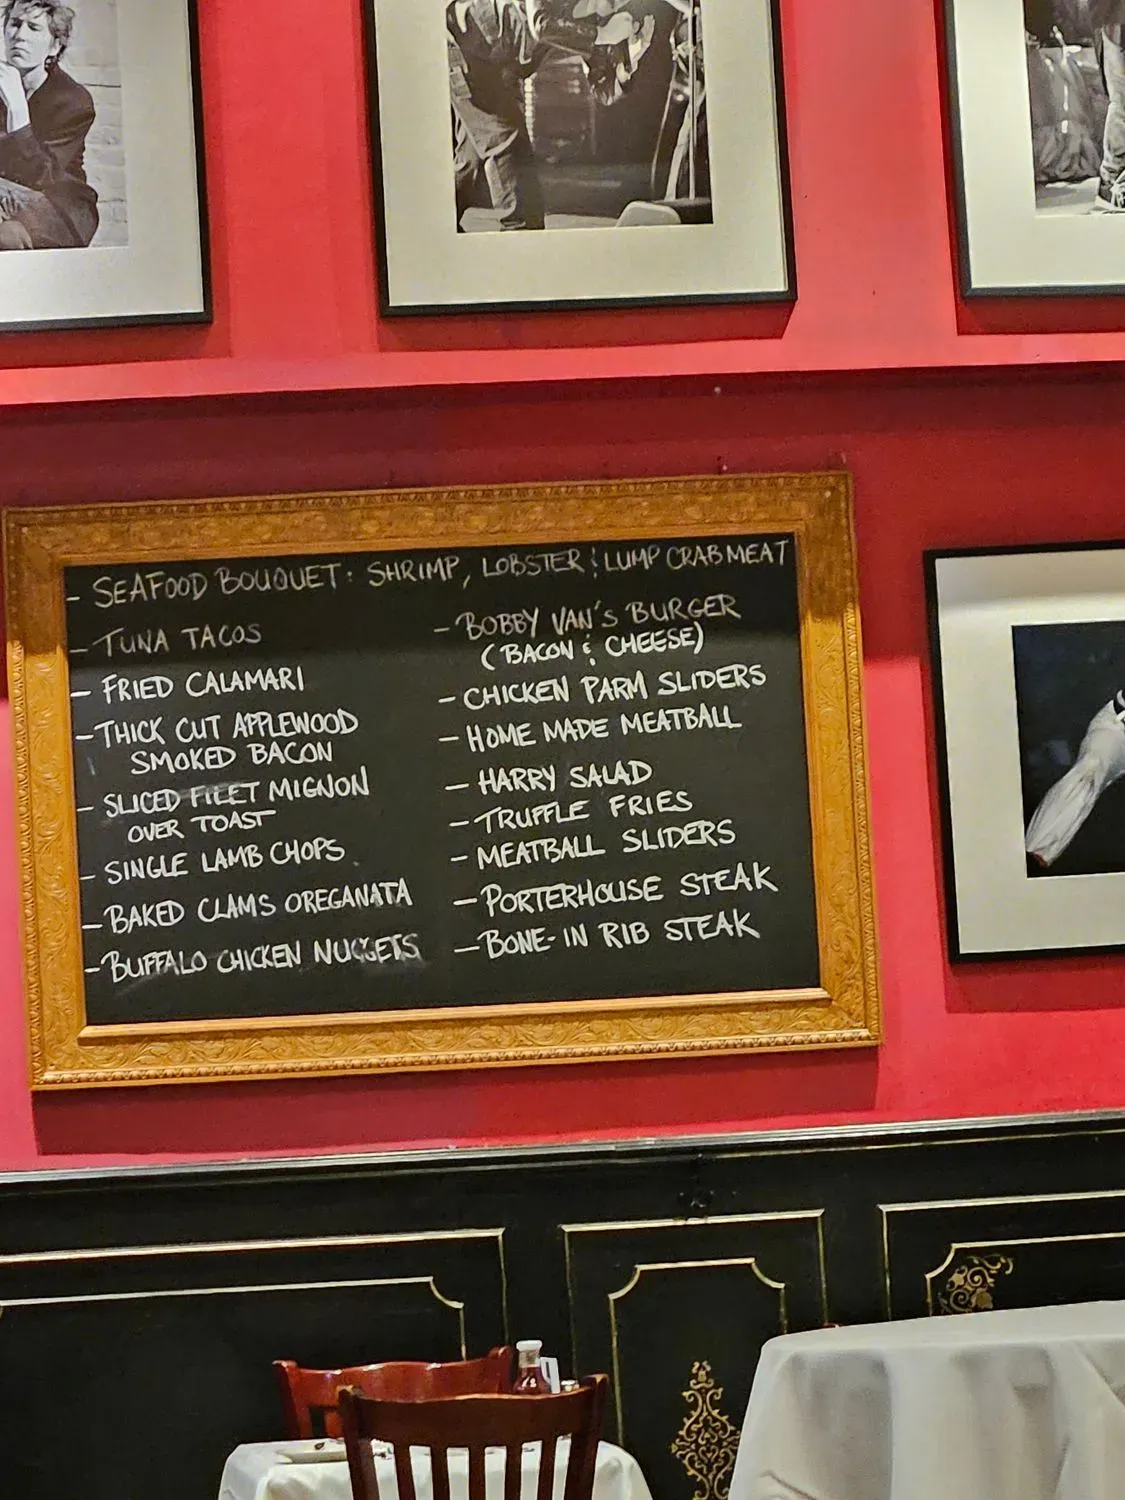 - SEAFOOD BOUQUET: SHRIMP, LOBSTER & LUMP CRABMEAT
- TUNA TACOS
- FRIED CALAMARI
- THICK CUT APPLEWOOD
SMOKED BACON
- SLICED FILET MIGNON
OVER TOAST
- SINGLE LAMB CHOPS
- BAKED CLAMS OREGANATA
- BUFFALO CHICKEN NUGGETS
- BOBBY VAN'S BURGER
(BACON & CHEESE)
- CHICKEN PARM SLIDERS
- HOME MADE MEATBALL
- HARRY SALAD
- TRUFFLE FRIES
- MEATBALL SLIDERS
- PORTERHOUSE STEAK
- BONE-IN RIB STEAK